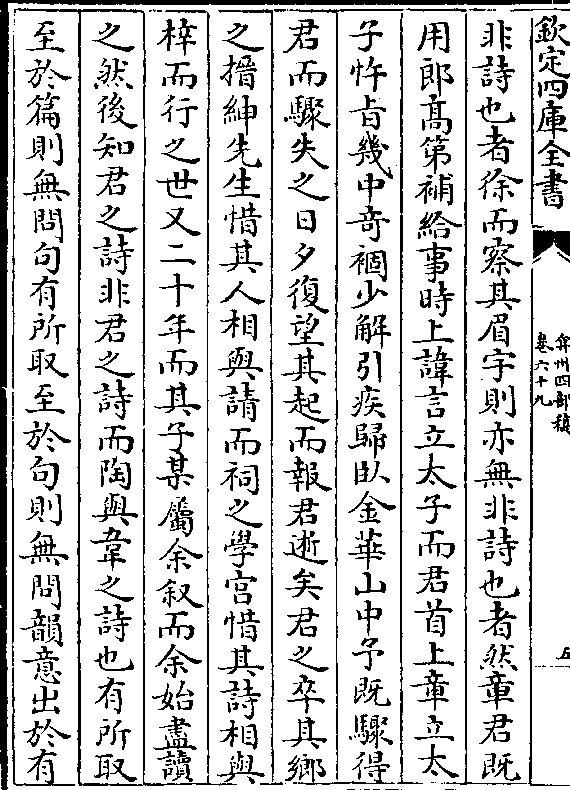 欽定四庫全書
弇州四部稿
卷六十九
五
非詩也者徐而察其眉宇則亦無非詩也者然章君既
用郎髙第補給事時上諱言立太子而君首上章立太
子忤㫖幾中竒禍少解引疾歸臥金華山中予既驟得
君而驟失之日夕復望其起而報君逝矣君之卒其鄉
之搢紳先生惜其人相與請而祠之學宫惜其詩相與
梓而行之世又二十年而其子某屬余叙而余始盡讀
之然後知君之詩非君之詩而陶與韋之詩也有所取
至於篇則無問句有所取至於句則無問韻意出於有